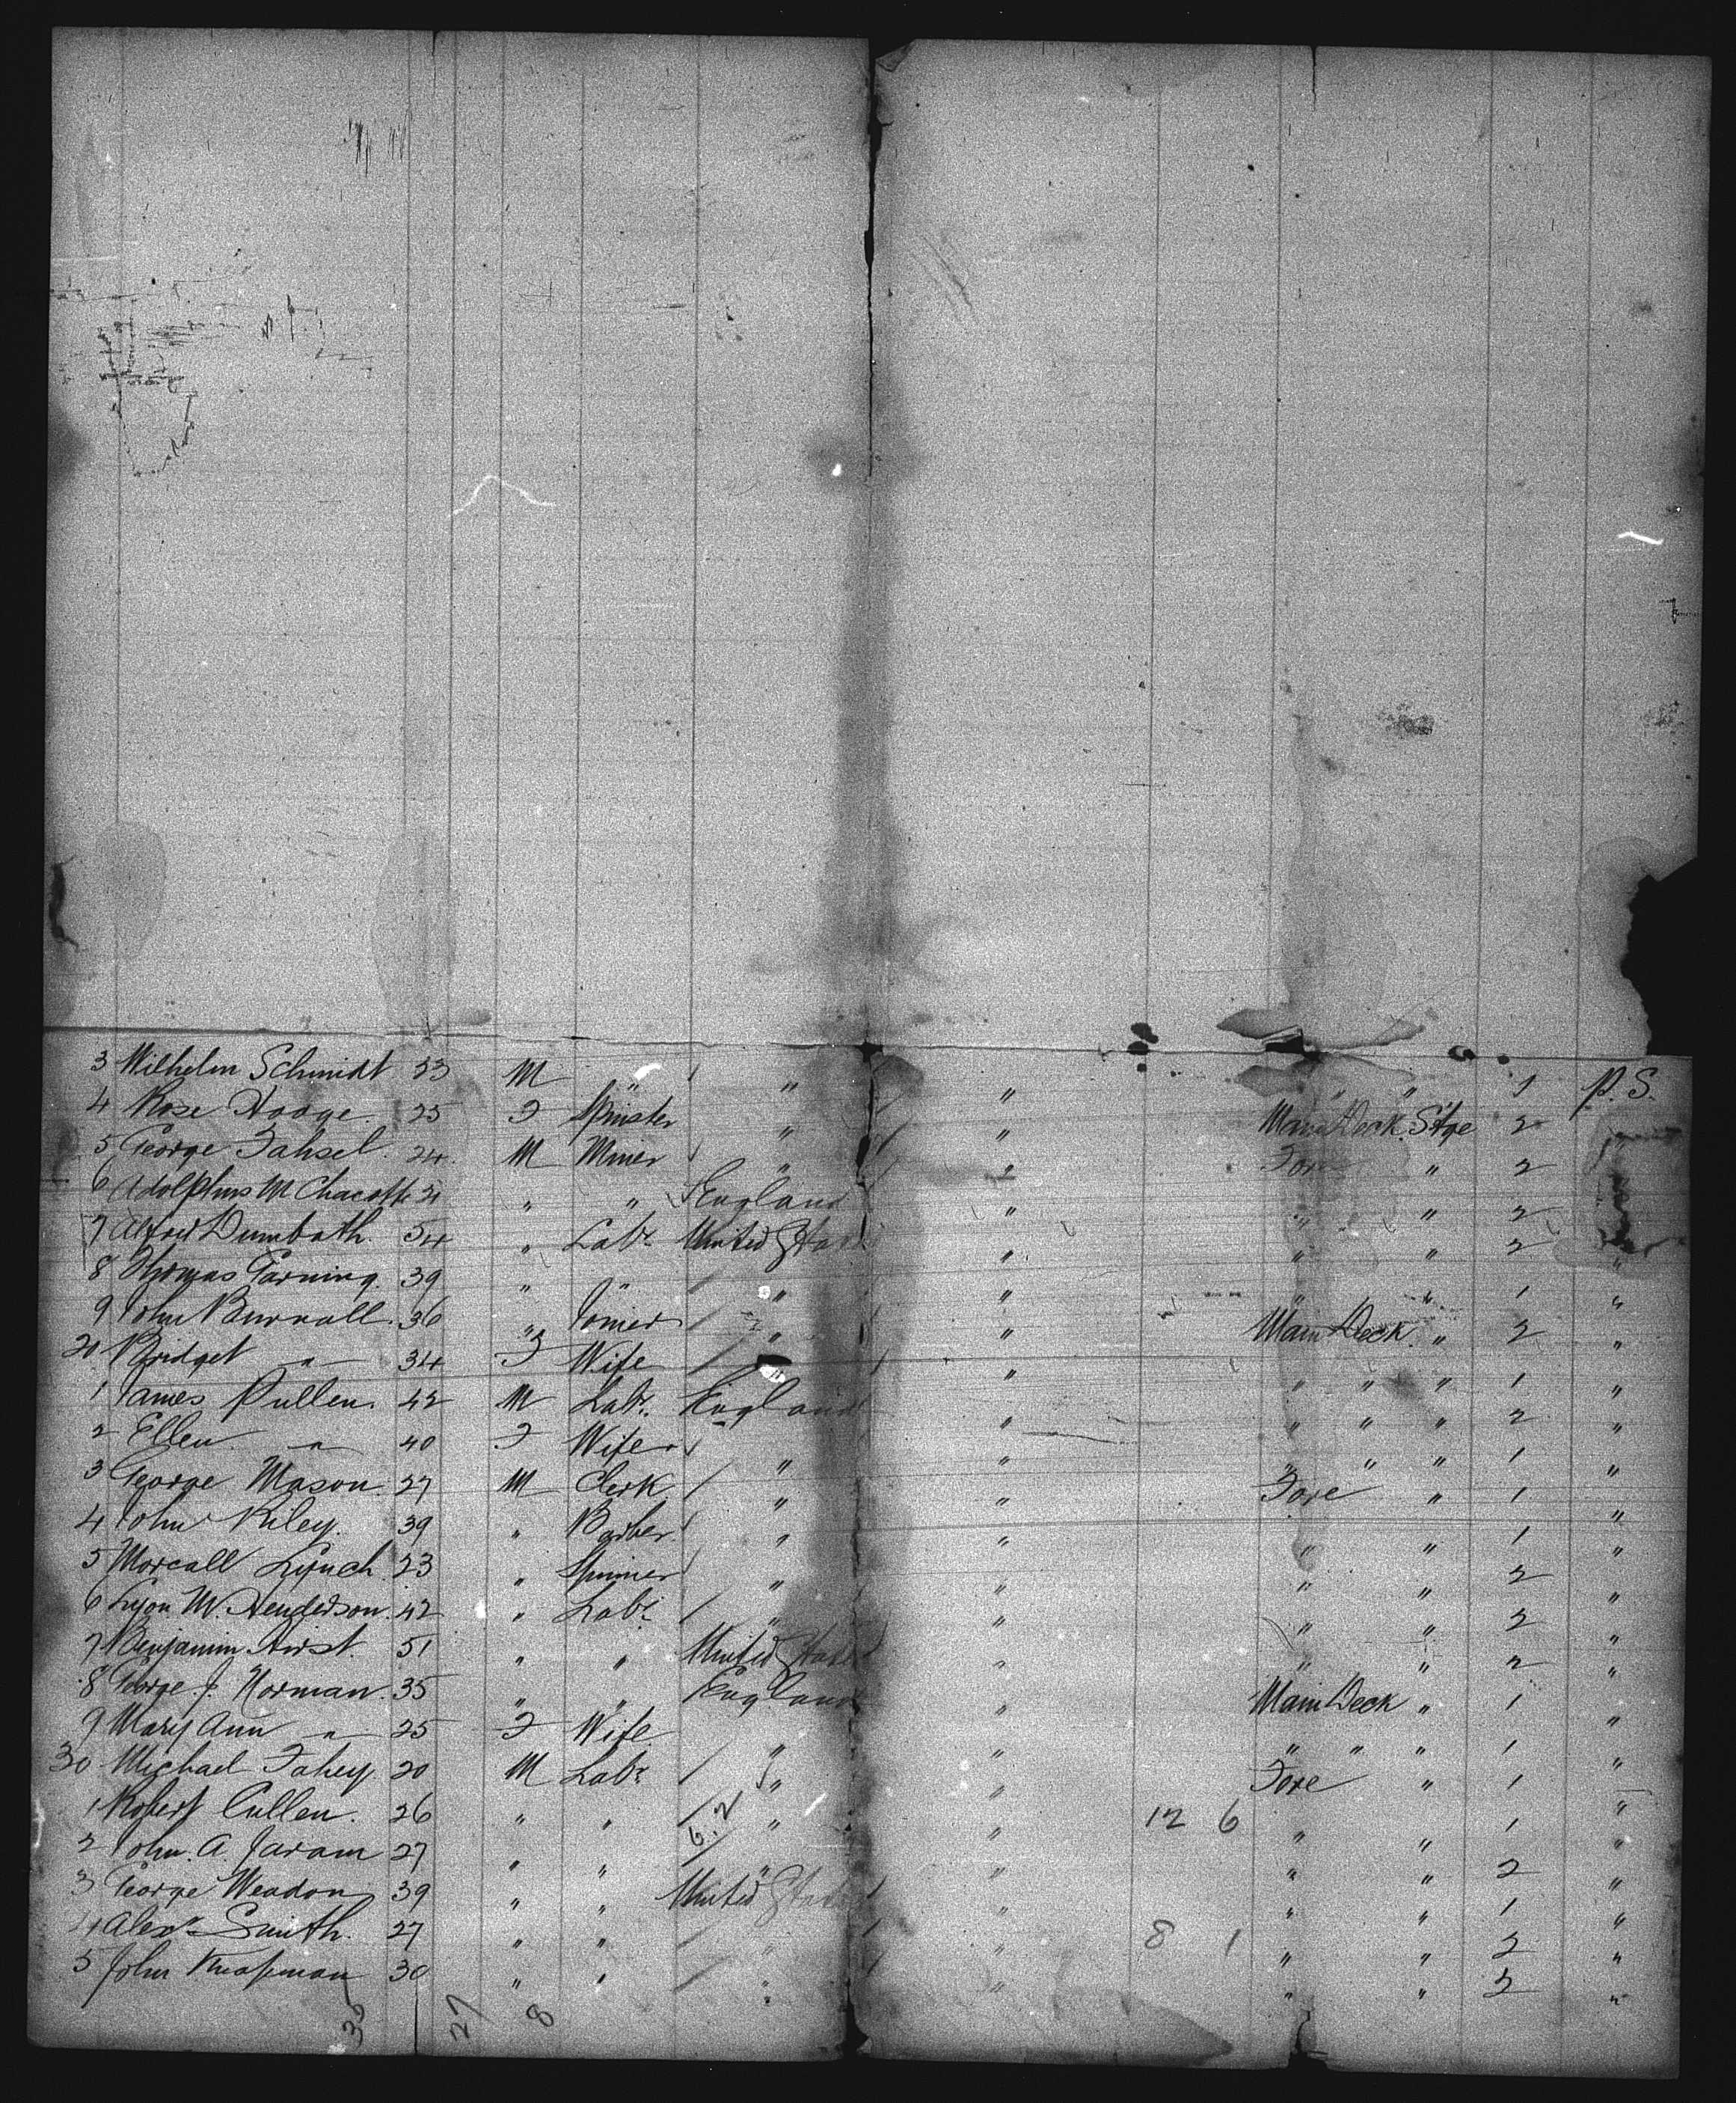 3 Wilhelm Schmidt 53 M " " " " " 1 P. S.
4 Rose Hodge 25 F Spinster " " Main Deck Stge 2
5 George Fahsel 24 M Miner " " Fore " 2
6 Adolphus M 21 " " England " " " 2
7 Alfred Dumbath. 54 " Labr United States " " " 2 "
8 Thomas Garning 39 " " " " " " 1 "
9 John Burnall. 36 " Joiner " " Main Deck " 2 "
20 Bridget " 34 F Wife " " " " 1 "
1 James Pullen. 42 M Labr. England " " " " 2 "
2 Ellen " 40 F Wife " " " " " 1 "
3 George Mason 27 M Clerk " " Fore " 1 "
4 John Riley. 39 " Barber " " " " 1 "
5 Morcall Lynch. 23 " Spinner " " " " 2 "
6 Lyon M. Henderson. 42 " Labr " " " " 2 "
7 Benjamin Hirst. 51 " " United States " " " 2 "
8 George J. Norman. 35 " " England " Main Deck " 1 "
9 Mary Ann " 25 F Wife " " " " " 1 "
30 Michael Fahey. 20 M Labr " " Fore " 1 "
1 Robert Cullen. 26 " " 6.2 " " 12 6 " " 1 "
2 John. A. Jaram 27 " " " " " " 2 "
3 George Weadon 39 " " United States " " " 1 "
4 Alexr Smith. 27 " " " " 8 1 " " 2 "
5 John Knapman 30 " " " " " " 2 "
35 27 8